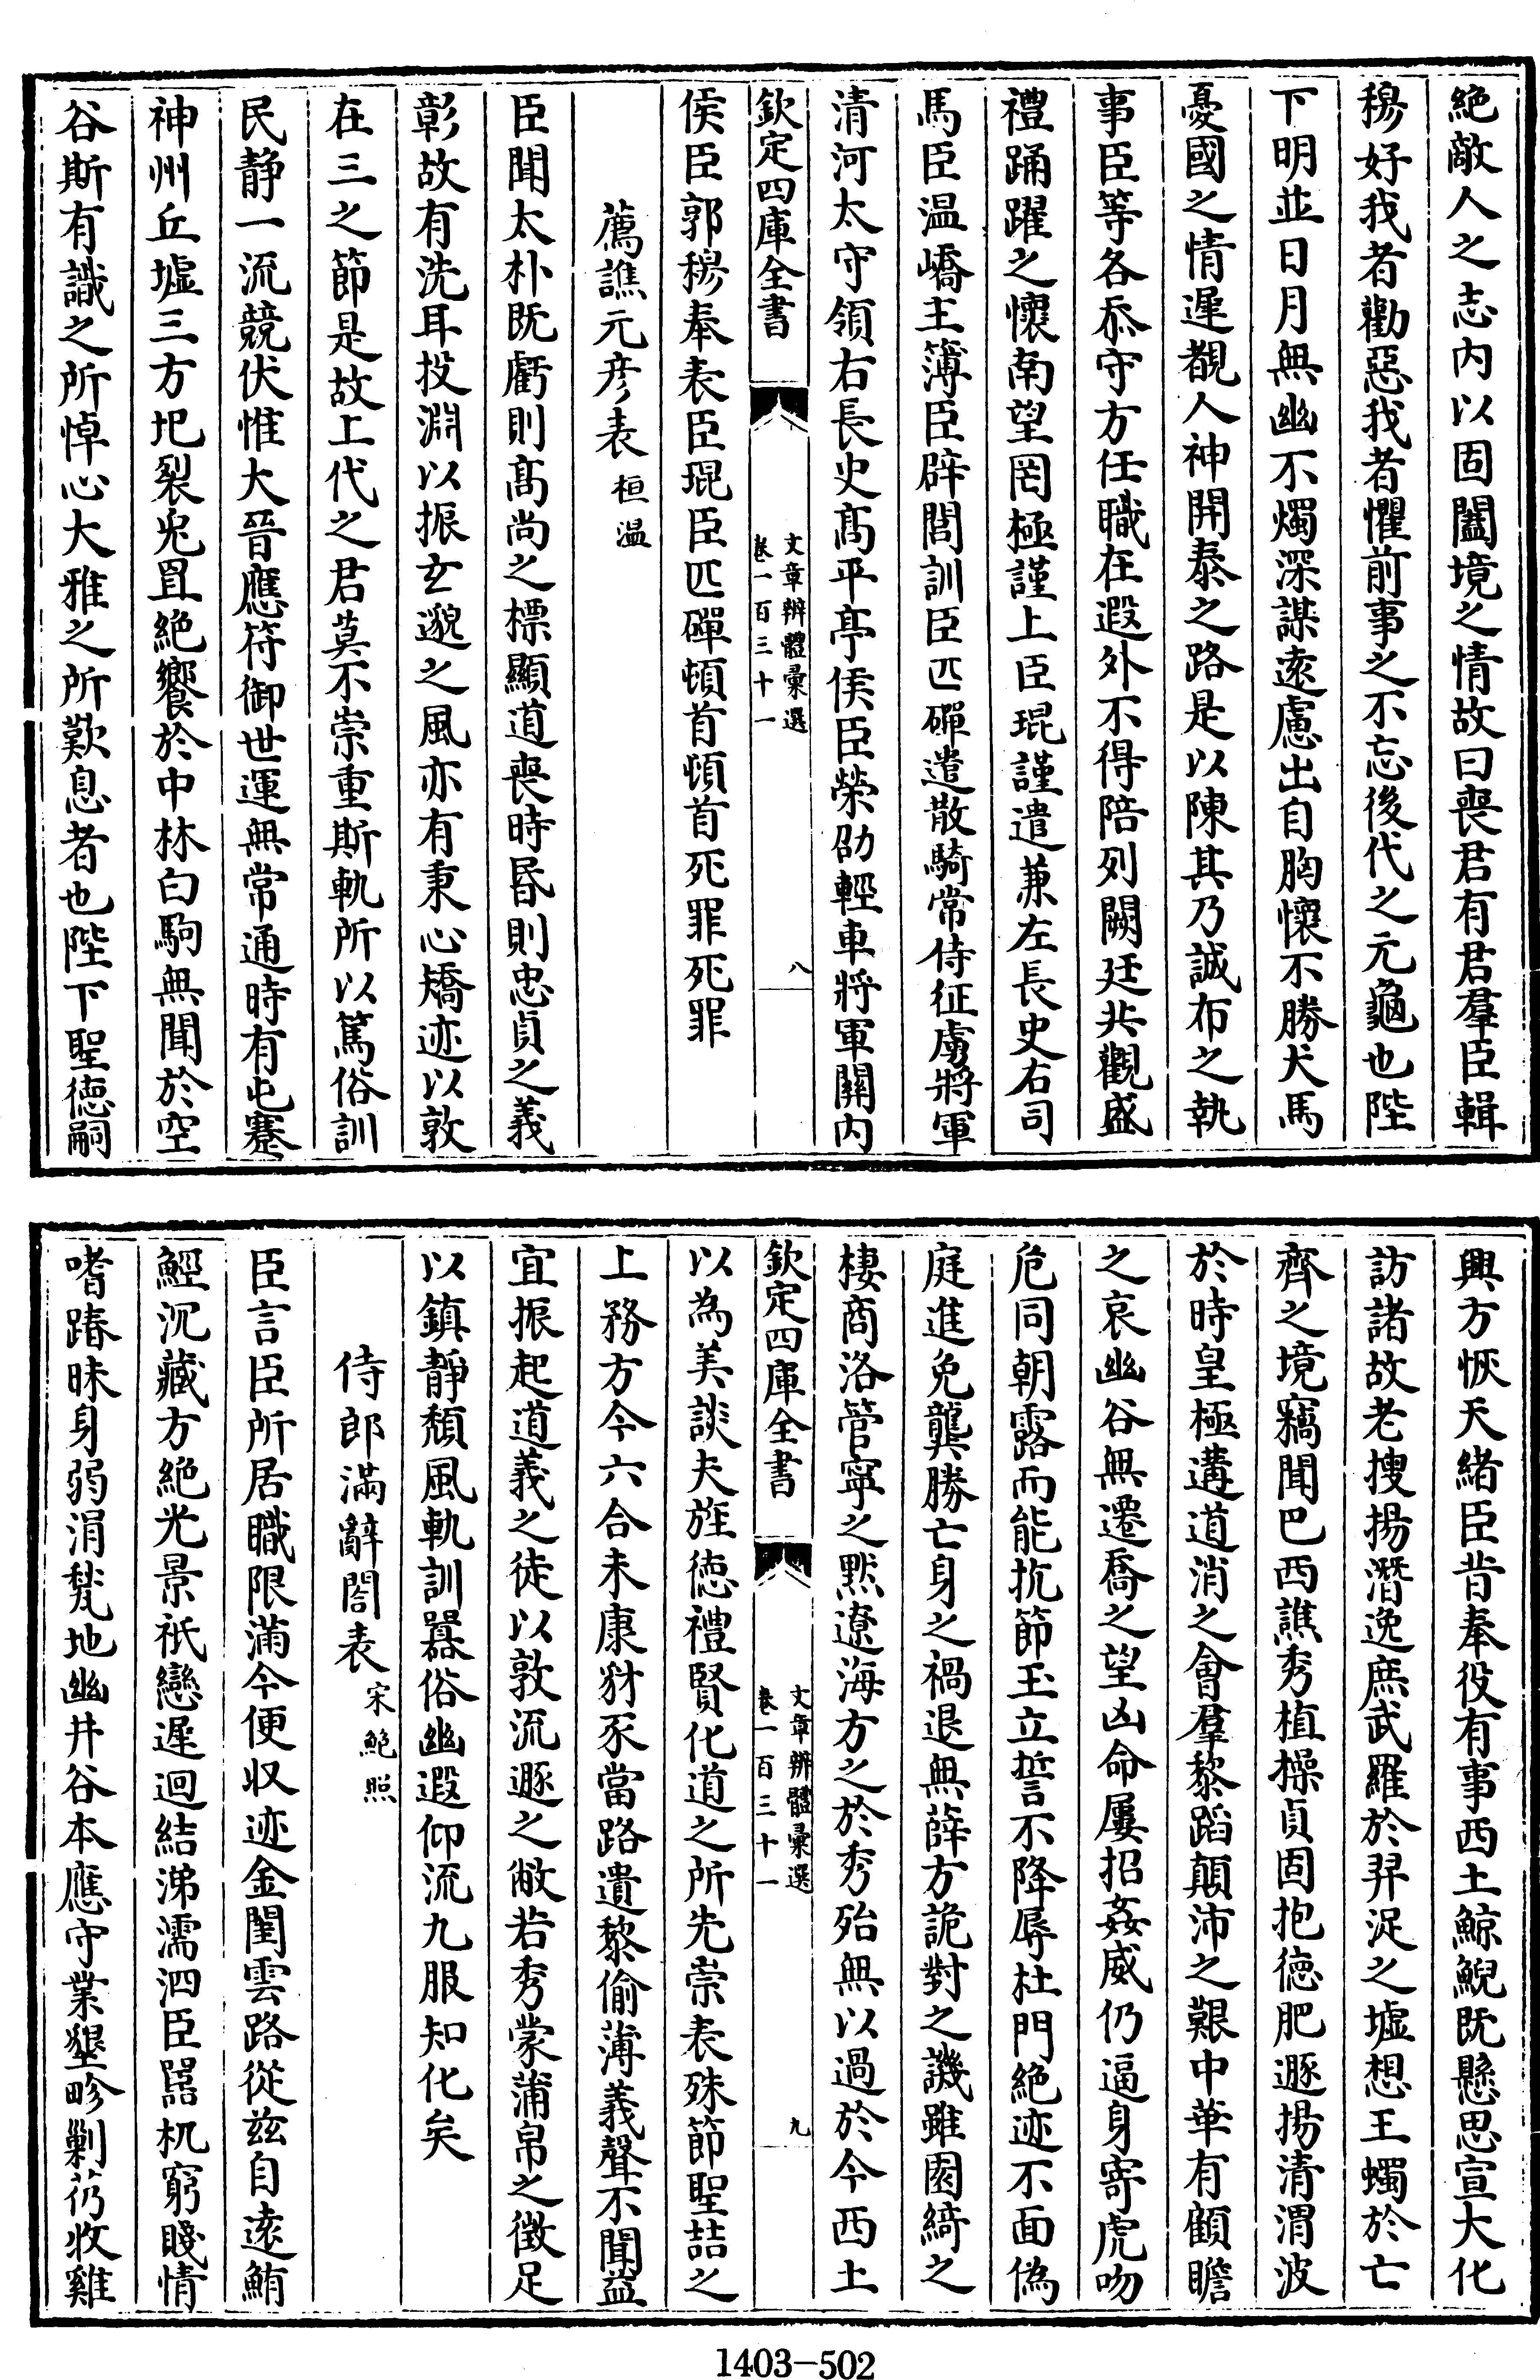 絶敵人之志内以固闔境之情故曰喪君有君羣臣輯
穆好我者勸惡我者懼前事之不忘後代之元龜也陛
下明並日月無幽不燭深謀逺慮出自胸懷不勝犬馬
憂國之情遲覩人神開泰之路是以陳其乃誠布之執
事臣等各忝守方任職在遐外不得陪列闕廷共觀盛
禮踊躍之懷南望罔極謹上臣琨謹遣兼左長史右司
馬臣温嶠主簿臣辟閭訓臣匹磾遣散騎常侍征虜將軍
清河太守領右長史髙平亭侯臣榮劭輕車將軍關内
欽定四庫全書
文章辨體彚選
卷一百三十一
八
侯臣郭穆奉表臣琨臣匹磾頓首頓首死罪死罪
薦譙元彦表桓温
臣聞太朴既虧則髙尚之標顯道喪時昏則忠貞之義
彰故有洗耳投淵以振玄邈之風亦有秉心矯迹以敦
在三之節是故上代之君莫不崇重斯軌所以篤俗訓
民静一流競伏惟大晉應符御世運無常通時有屯蹇
神州丘墟三方圮裂兎罝絶響於中林白駒無聞於空
谷斯有識之所悼心大雅之所歎息者也陛下聖徳嗣
興方恢天緒臣昔奉役有事西土鯨鯢既懸思宣大化
訪諸故老搜揚潛逸庶武羅於羿浞之墟想王蠋於亡
齊之境竊聞巴西譙秀植操貞固抱徳肥遯揚清渭波
於時皇極遘道消之會羣黎蹈顛沛之艱中華有顧瞻
之哀幽谷無遷喬之望凶命屢招姦威仍逼身寄虎吻
危同朝露而能抗節玉立誓不降辱杜門絶迹不面偽
庭進免龔勝亡身之禍退無薛方詭對之譏雖園綺之
棲商洛管寧之黙遼海方之於秀殆無以過於今西土
欽定四庫全書
文章辨體彚選
卷一百三十一
九
以為美談夫旌徳禮賢化道之所先崇表殊節聖喆之
上務方今六合未康豺豕當路遺黎偷薄義聲不聞益
宜振起道義之徒以敦流遯之敝若秀蒙蒲帛之徴足
以鎮靜頽風軌訓囂俗幽遐仰流九服知化矣
侍郎滿辭閤表宋鮑照
臣言臣所居職限滿今便収迹金閨雲路從兹自逺鮪
鰹沉藏方絶光景祇戀遲迴結涕濡泗臣嚚杌窮賤情
嗜踳昧身弱涓甃地幽井谷本應守業墾畛剿芿收雞
1403-502